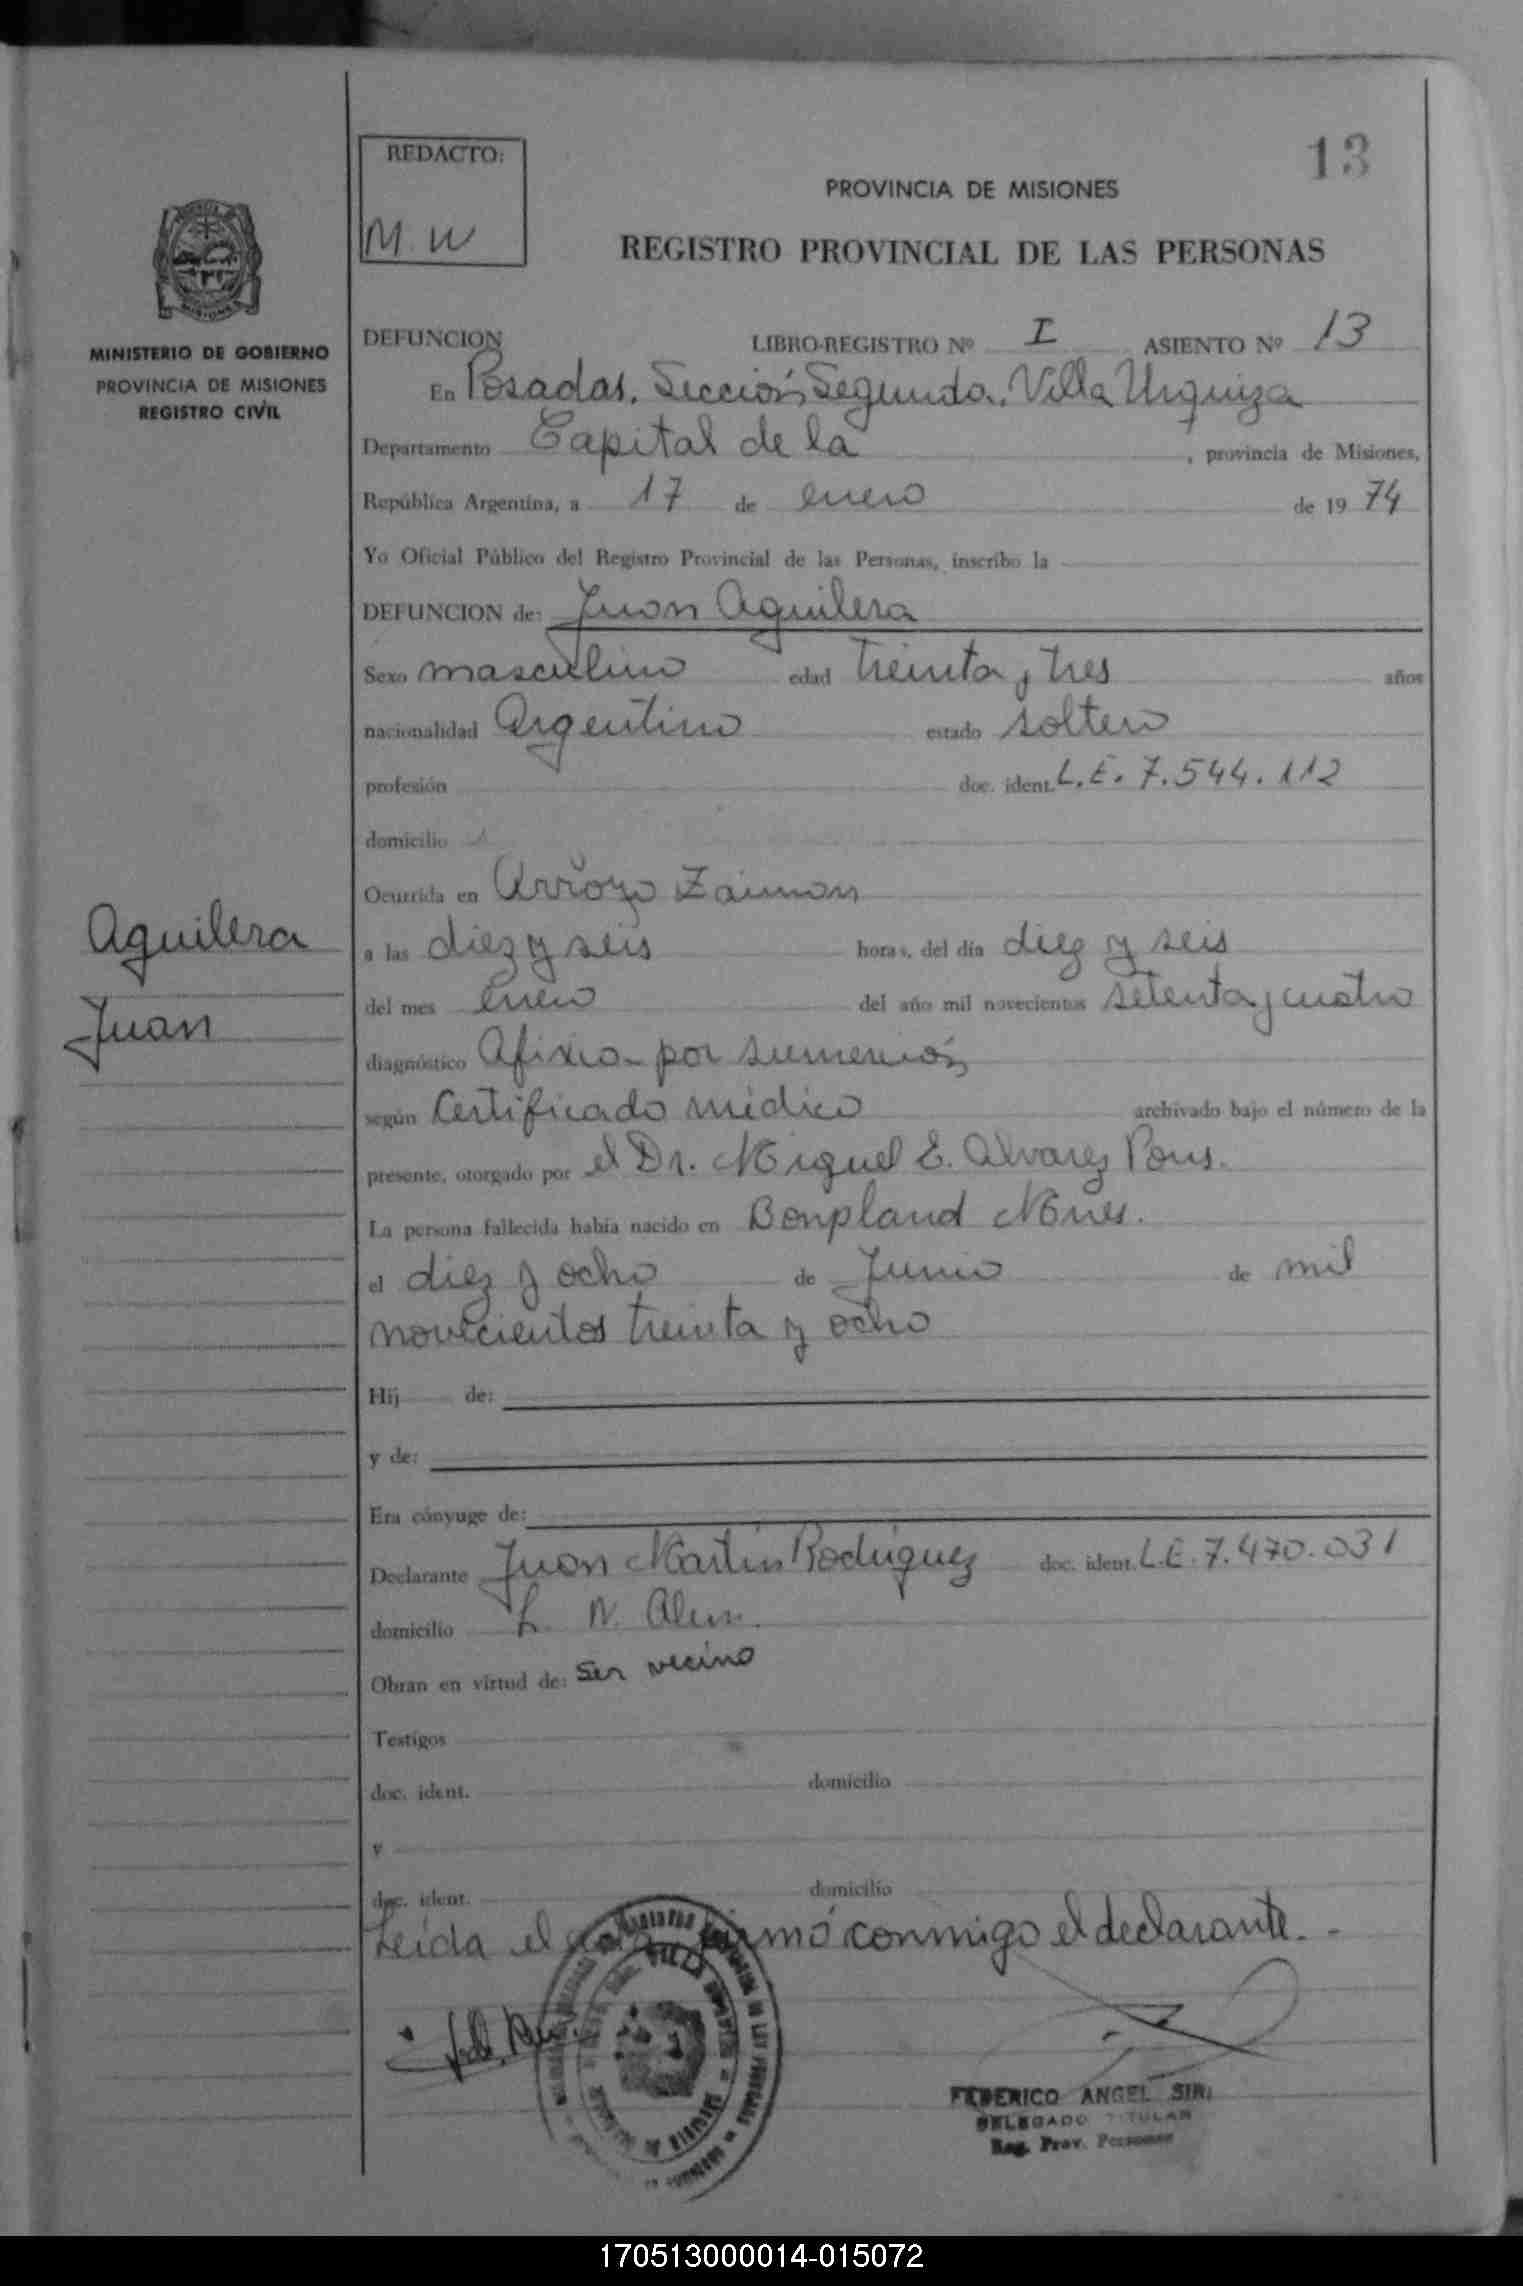 13
REDACTO:
M. W
PROVINCIA DE MISIONES
REGISTRO PROVINCIAL DE LAS PERSONAS
MINISTERIO DE GOBIERNO
PROVINCIA DE MISIONES
REGISTRO CIVIL
DEFUNCION LIBRO-REGISTRO Nº I ASIENTO Nº 13
En Posadas, Sección Segunda, Villa Urquiza
Departamento Capital de la , provincia de Misiones,
República Argentina, a 17 de enero de 1974
Yo Oficial Público del Registro Provincial de las Personas, inscribo la
DEFUNCION de: Juan Aguilera
Sexo masculino edad treinta y tres años
nacionalidad Argentino estado soltero
profesión doc. ident. L.E. 7.544.112
domicilio
Ocurrida en Arroyo Zaiman
Aguilera
Juan
a las diez y seis horas, del día diez y seis
del mes enero del año mil novecientos setenta y cuatro
diagnóstico Afixia por sumerción
según Certificado médico archivado bajo el número de la
presente, otorgado por el Dr. Miguel E. Alvarez Pons.
La persona fallecida había nacido en Bonpland Mnes.
el diez y ocho de Junio de mil
novecientos treinta y ocho
Hij de:
y de:
Era cónyuge de:
Declarante Juan Martin Rodriguez doc. ident. L.E. 7.470.031
domicilio L. N. Alem.
Obran en virtud de: Ser vecino
Testigos
doc. ident. domicilio
y
doc. ident. domicilio
Leída el acta firmó conmigo el declarante. -
VILLA URQUIZA
FEDERICO ANGEL SIRI
DELEGADO TITULAR
Reg. Prov. Personas
170513000014-015072